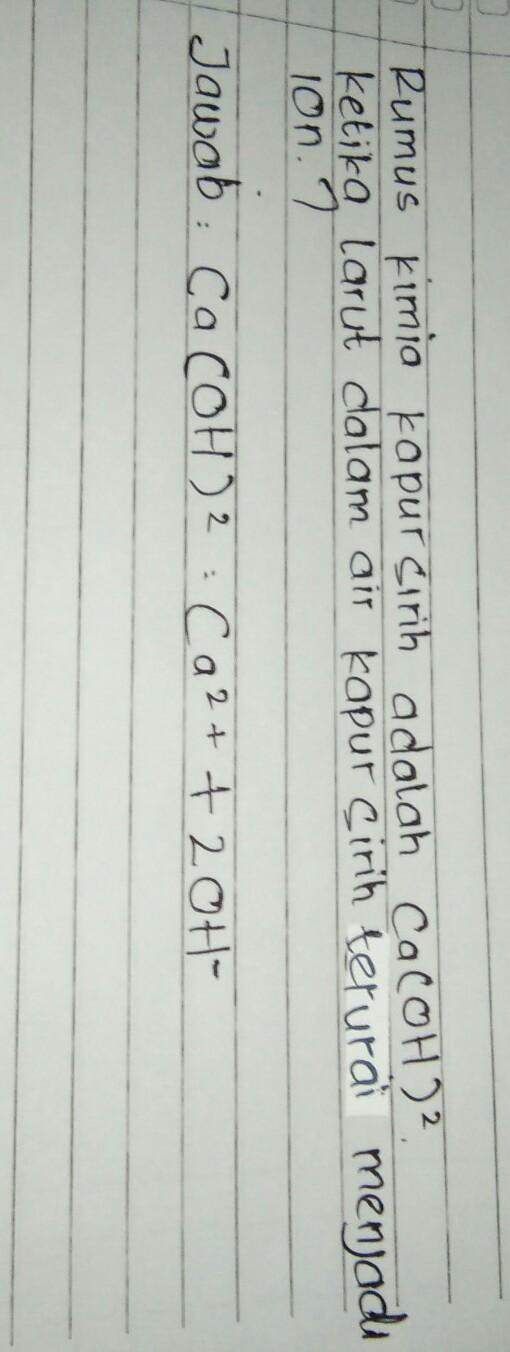 Rumus kimia kapur sirih adalah Ca(OH)².
ketika larut dalam air kapur sirih terurai menjadi
ion. ?
Jawab : Ca(OH)² : Ca²+ + 2OH-